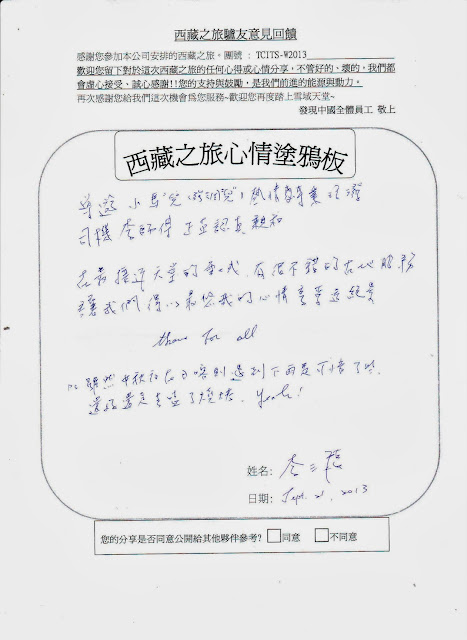 西藏之旅驢友意見回饋
感謝您參加本公司安排的西藏之旅。團號：TCITS-W2013
歡迎您留下對於這次西藏之旅的任何心得或心情分享，不管好的、壞的，我們都
會虛心接受、誠心感謝!!您的支持與鼓勵，是我們前進的能源與動力。
再次感謝您給我們這次機會為您服務~歡迎您再度踏上雪域天堂~
發現中國全體員工 敬上
西藏之旅心情塗鴉板
導遊 小馬 熱情
司機 李師傅 正直認真親和
在最接近天堂的 有很不錯的 服務
讓我們得以 的心情享受這絕景
for all
雖然中秋 日喀則遇到下雨是可惜了些
還是 了燒烤. Yeah!
姓名: 李三
日期: Sept. 21, 2013
您的分享是否同意公開給其他夥伴參考? 同意 不同意